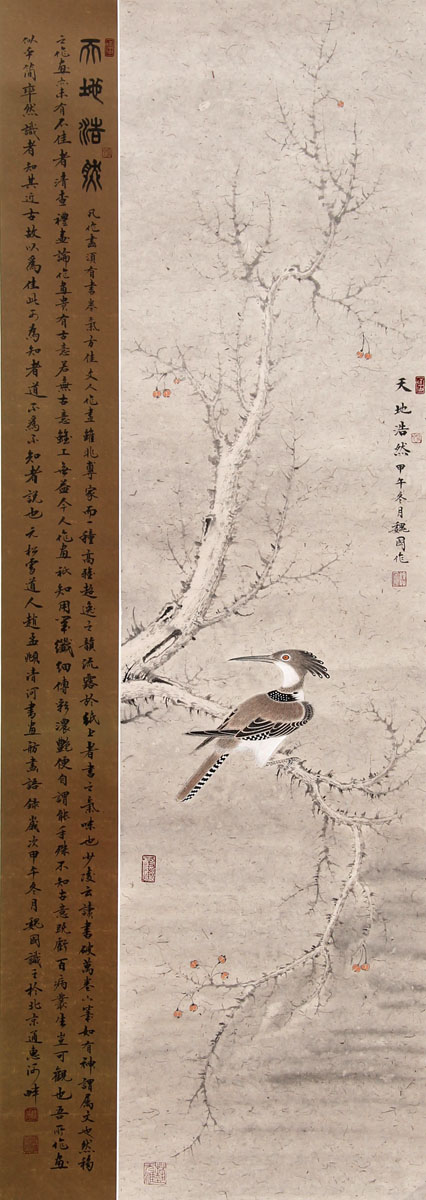 天地浩然 甲午冬月魏国作
天地浩然
凡作畫須有書卷氣方佳文人作畫雖非專家而一種高雅超逸之韻流露於紙上者書之氣味也少陵云讀書破萬卷下筆如有神謂屬文也然移
之作畫亦未有不佳者清查禮畫論作畫貴有古意若無古意雖工無益今人作畫祇知用筆纖細傅彩濃艷便自謂能手殊不知古意既虧百病叢生豈可觀也吾所作畫
似乎簡率然識者知其近古故以為佳此可為知者道不為不知者說也元松雪道人趙孟頫清河書畫舫畫語錄歲次甲午冬月魏國識之於北京通惠河畔